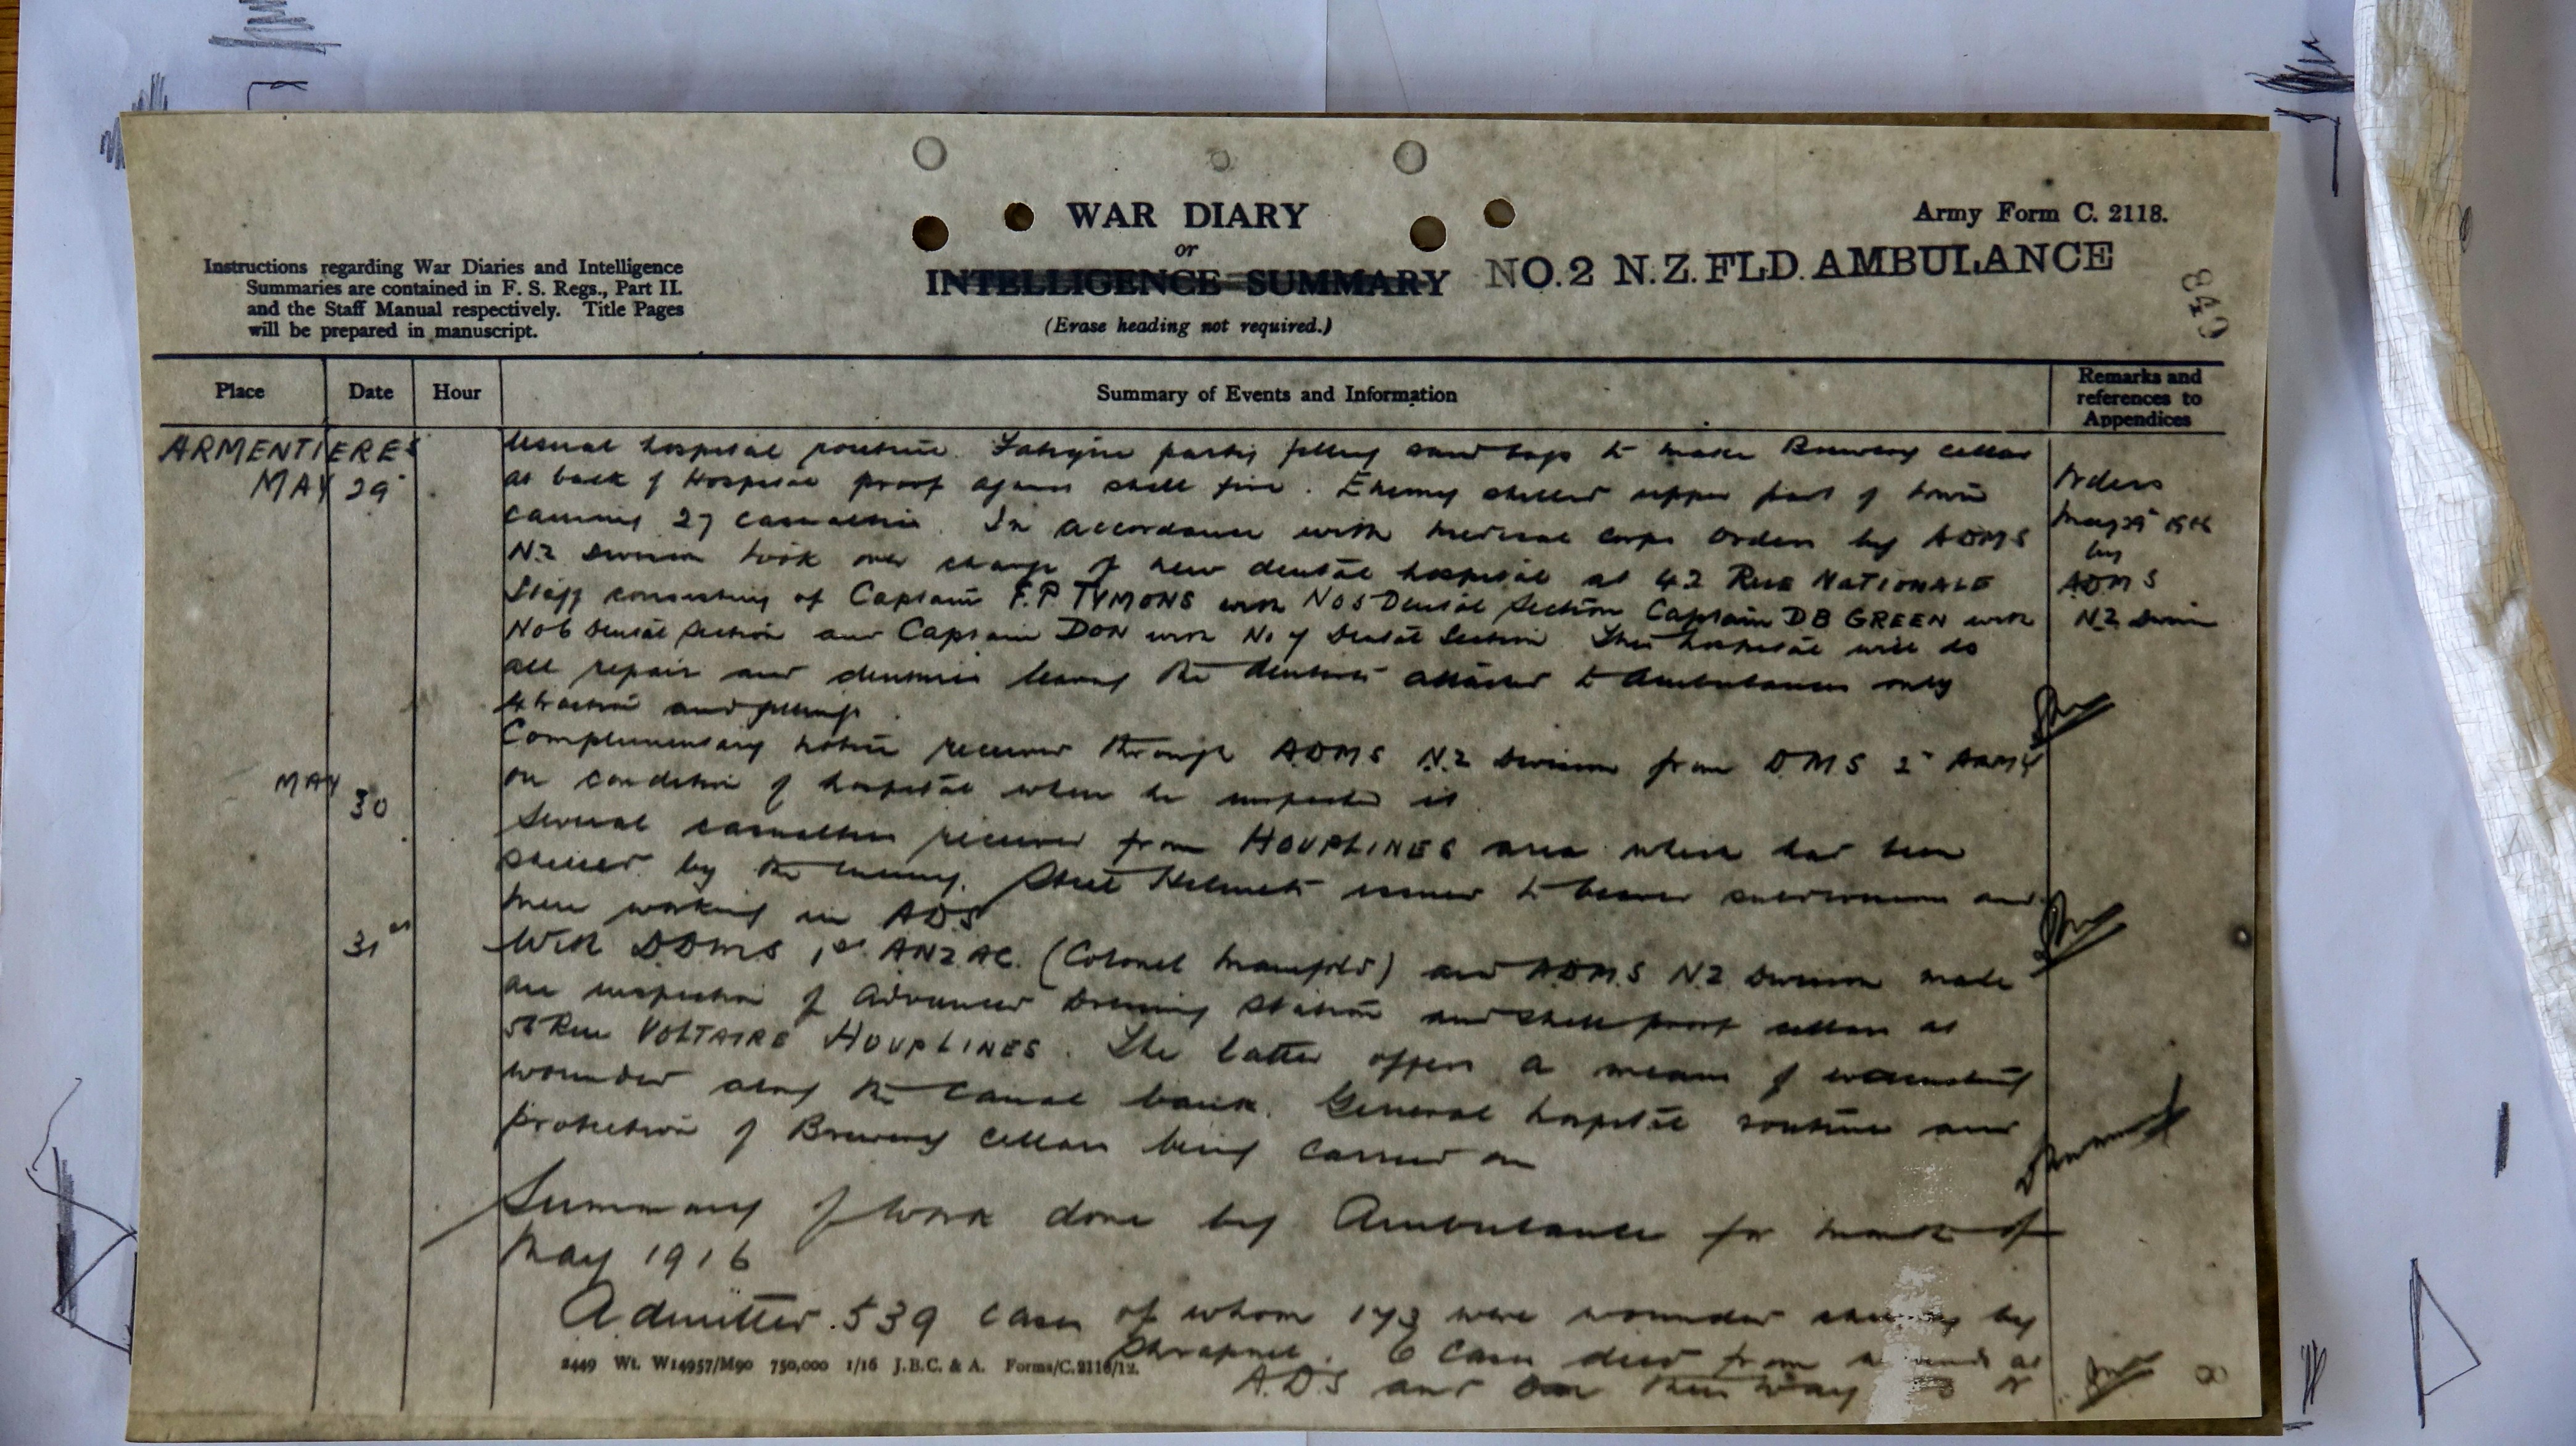 WAR DIARY
or
INTELLIGENCE SUMMARY
(Erase heading not required.)
Army Form C. 2118.
NO.2 N.Z.FLD.AMBULANCE
840
Instructions regarding War Diaries and Intelligence
Summaries are contained in F. S. Regs., Part II.
and the Staff Manual respectively. Title Pages
will be prepared in manuscript.
Place Date Hour Summary of Events and Information Remarks and references to Appendices
ARMENTIERES
MAY 29
Usual hospital routine. Fatigue party filling sand bags to make Brewery cellar
at back of Hospital proof against shell fire. Enemy shelled upper part of town
causing 27 casualties. In accordance with medical corps orders by ADMS
NZ Division took over charge of new dental hospital at 42 RUE NATIONALE
Staff consisting of Captain F.P. TYMONS with No 5 Dental Section Captain DB GREEN with
No 6 Dental Section and Captain DON with No Dental Section. This hospital will do
all repair and dentures leaving the dentists attached to Ambulances only
and fillings.
Orders
May 29
by
ADMS
NZ Divn
MAY 30
Complimentary notice received through ADMS NZ Division from DMS 2 ARMY
on condition of hospital when he inspected it.
Several casualties received from HOUPLINES area which had been
shelled by the enemy. Steel Helmets issued to bearer subdivisions and
men working in ADS
31st
With DDMS 1st ANZAC. (Colonel Manifold) and ADMS NZ Division made
an inspection of Advanced Dressing Station and shell proof cellars at
Rue VOLTAIRE HOUPLINES. The latter offers a means of evacuating
wounded along the canal bank. General hospital routine and
protection of Brewery cellars being carried on
Summary of work done by Ambulance for month of
May 1916
Admitted 539 cases of whom 173 were wounded by
Shrapnel. 6 cases died from wounds at
A.D.S and on their way to
2449 Wt. W14957/M90 750,000 1/16 J.B.C. & A. Forms/C.2118/12.